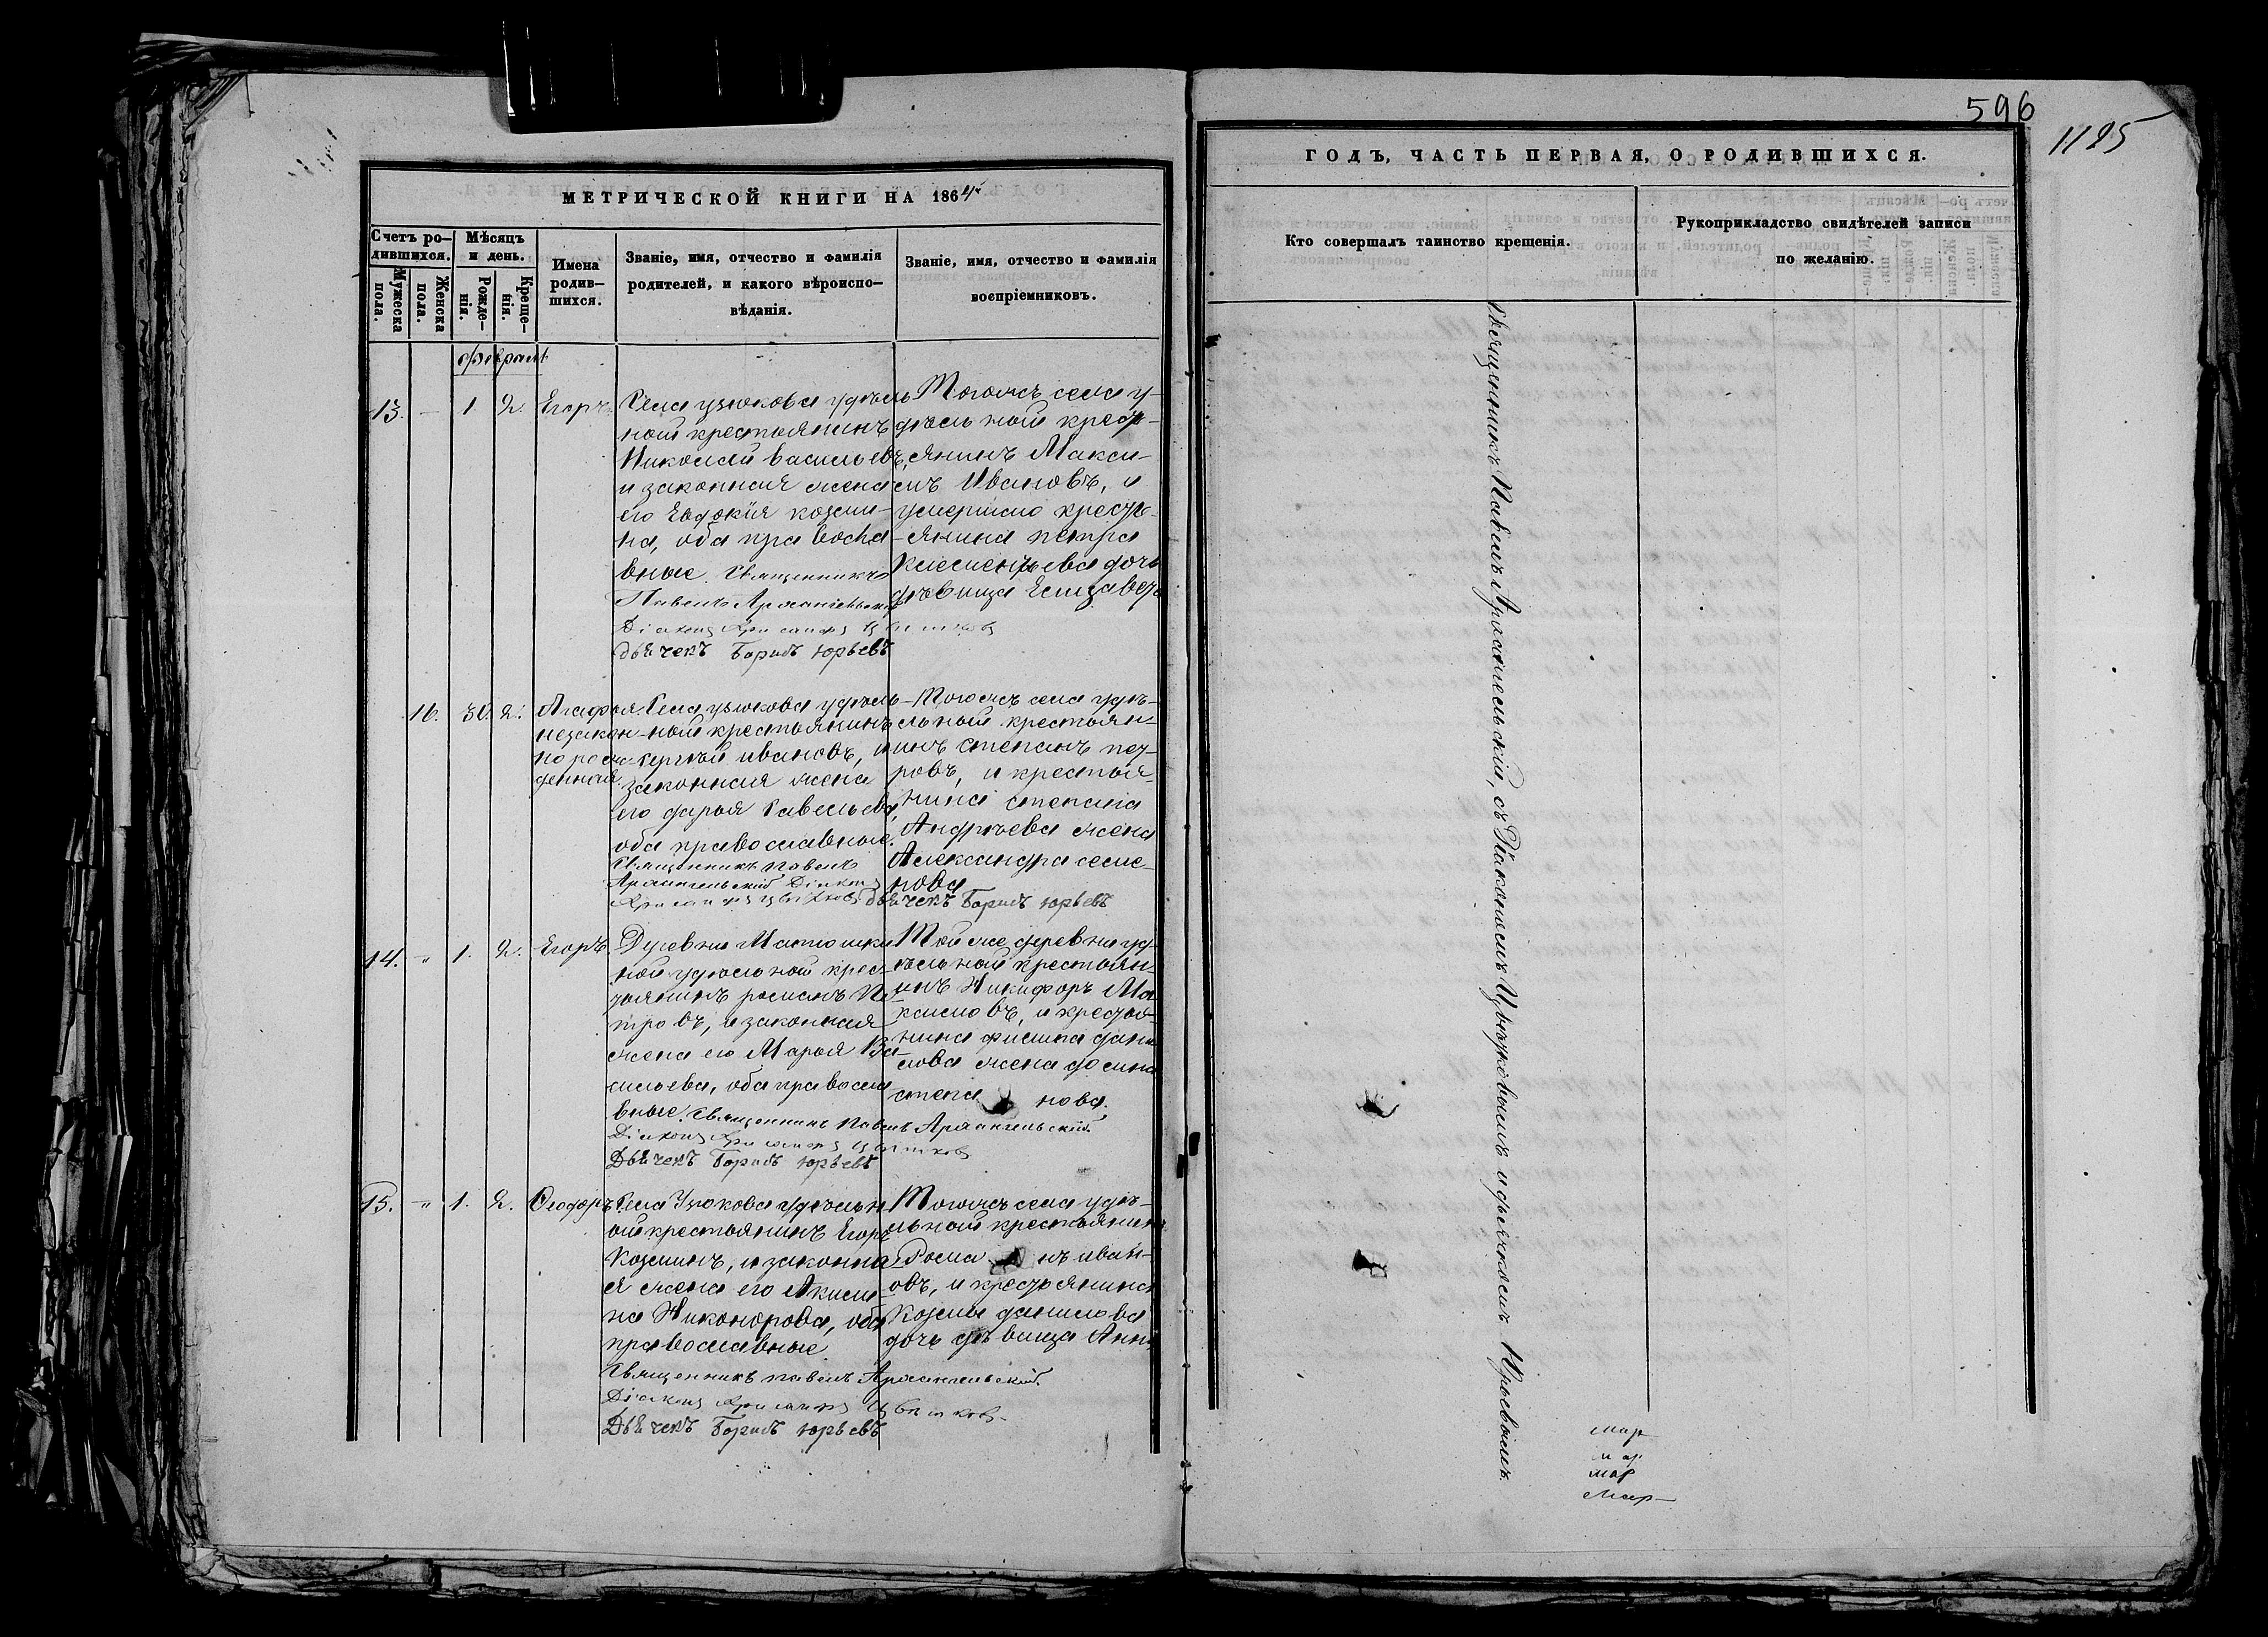 596
1125
МЕТРИЧЕСКОЙ КНИГИ НА 1864
Счетъ ро-
дившихся.
Мужеска
пола.
Женска
пола.
Мѣсяцъ
и день.
Рожде-
нія.
Креще-
нія.
Имена
родив-
шихся.
Званіе, имя, отчество и фамилія
родителей, и какого вѣроиспо-
вѣданія.
Званіе, имя, отчество и фамилія
воспріемниковъ.
февраль
13. - 1 2. Егоръ.
Села узюкова удѣль
ной крестьянинъ
Николай васильевъ,
и законная жена
его Евдокія козми-
на, оба правосла-
вные. Священникъ
Павелъ Архангельскій
Діаконъ Хрисанфъ Цвѣтковъ
Дьячекъ Борисъ юрьевъ
Тогожъ села у-
дѣльной крест-
янинъ Макси-
мъ Ивановъ, и
умершаго кресть-
янина петра
Клементьева дочь
дѣвица Елизавета
16. 30. 2.
Агафья.
незакон-
норож-
денная.
Села узюкова удѣль-
ный крестьянинъ
Сергѣй ивановъ, и
законная жена
его дарья Савельева,
оба православные.
Священникъ павелъ
Архангельскій Діаконъ
Хрисанфъ Цвѣтковъ дьячекъ Борисъ юрьевъ
Тогожъ села удѣ-
льный крестьян-
инъ степанъ пет-
ровъ, и крестья-
нина степана
Андрѣева жена
Александра семе-
нова
14. " 1. 2. Егоръ.
Деревни Матюшки
ной удѣльной крес-
тьянинъ романъ Пе-
тровъ, и законная
жена его Марья Ва-
сильева, оба правосла
вные. Священникъ павелъ Архангельскій.
Діаконъ Хрисанфъ Цвѣтковъ
Дьячекъ Борисъ юрьевъ
Той же деревни уд-
ѣльной крестьян-
инъ Никифоръ Ма-
ксимовъ, и крестья-
нина филипа дани
лова жена домна
степа нова.
15. " 1. 2. Ѳеодоръ
Села Узюкова удѣльн
ой крестьянинъ Егоръ
Козминъ, и законна
я жена его Акили-
на Никонорова, оба
православные
Священникъ павелъ Архангельскій.
Діаконъ Хрисанфъ Цвѣтковъ.
Дьячекъ Борисъ юрьевъ
Тогожъ села удѣ-
льной крестьянинъ
Рома нъ иван-
овъ, и крестьянина
Козмы данилова
дочь дѣвица Анна
ГОДЪ, ЧАСТЬ ПЕРВАЯ, О РОДИВШИХСЯ.
Кто совершалъ таинство крещенія.
Рукоприкладство свидѣтелей записи
по желанію.
Священникъ Павелъ Архангельскій, съ Діакономъ Цвѣтковымъ и дьячкомъ Юрьевымъ.
мар
мар
мар
Мар